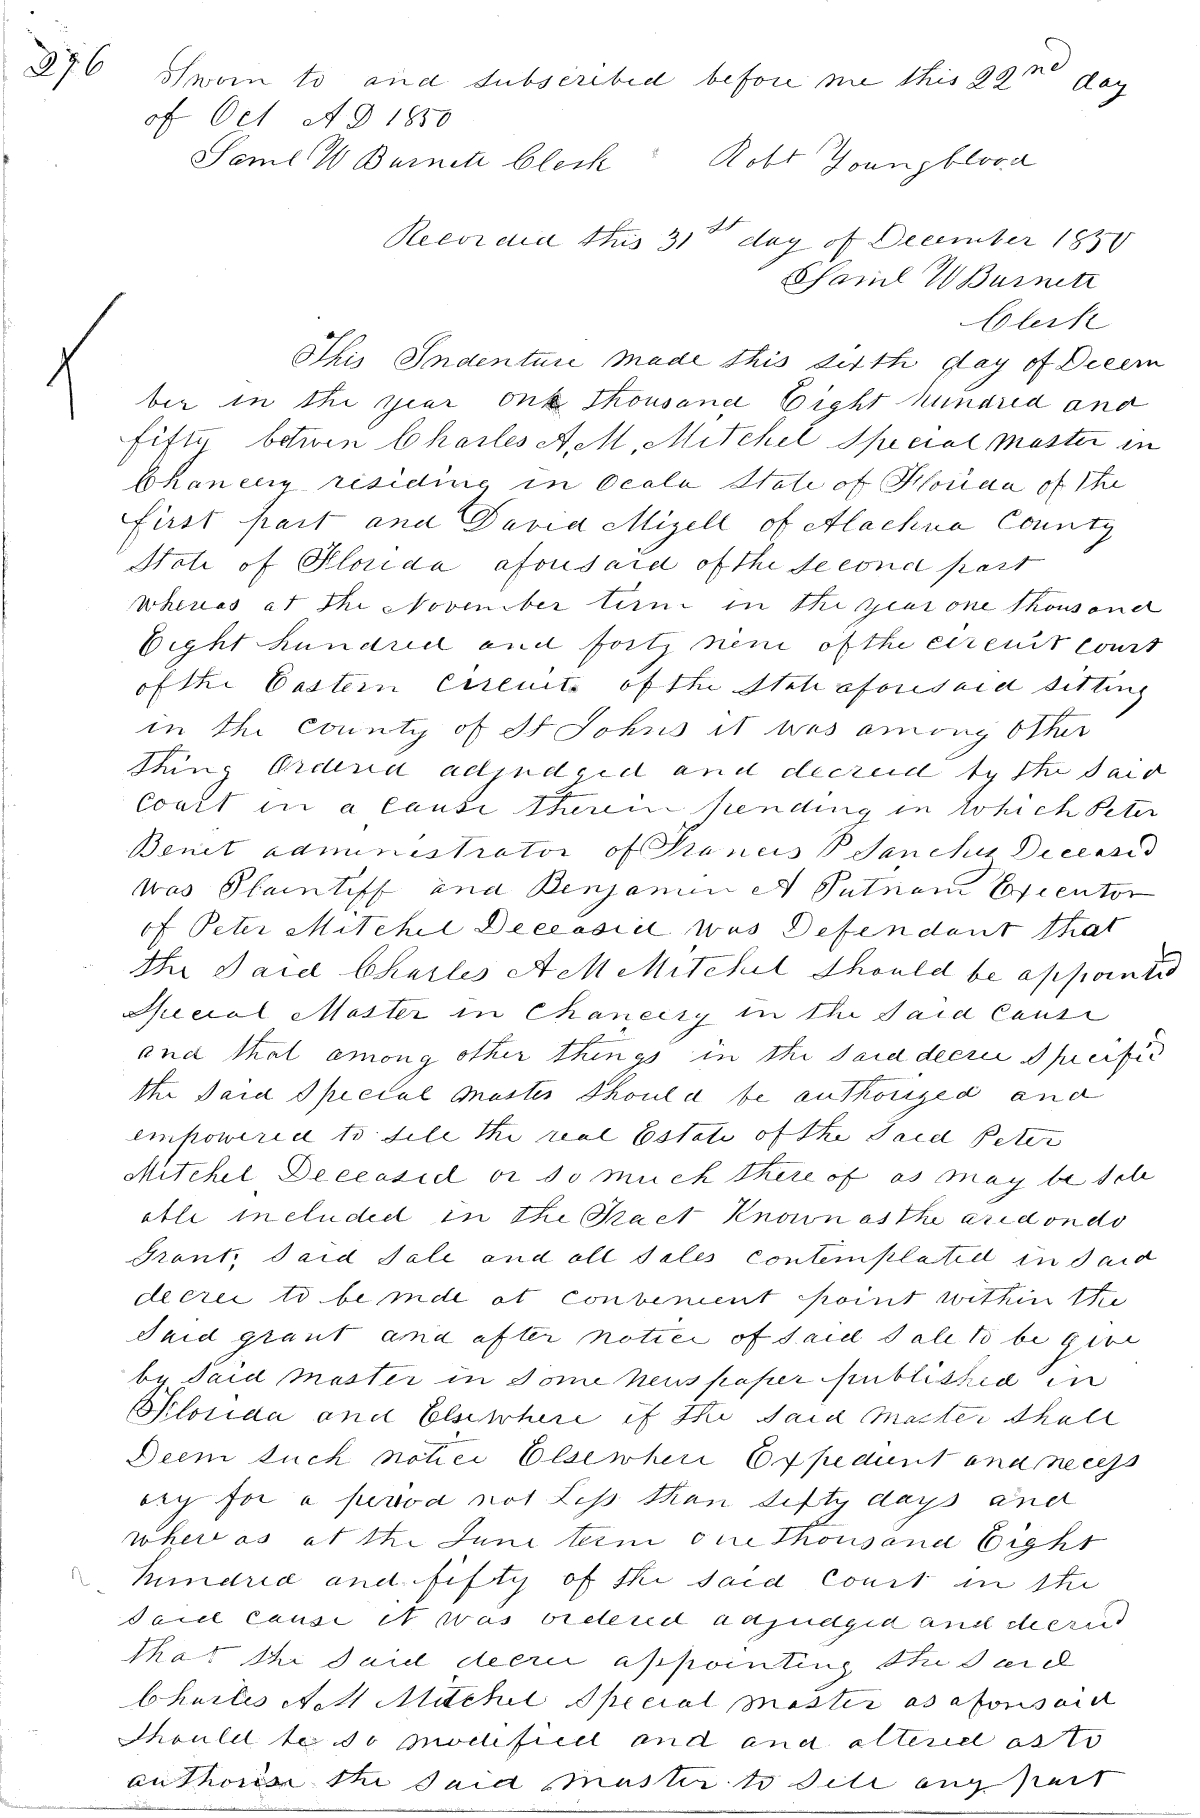 276
Sworn to and subscribed before me this 22nd day
of Oct A D 1850
Saml W Burnett Clerk Robt Youngblood
Recorded this 31st day of December 1850
Saml W Burnett
Clerk
This Indenture made this sixth day of Decem
ber in the year one thousand Eight hundred and
fifty betwen Charles A, M, Mitchel Special Master in
Chancery residing in Ocala State of Florida of the
first part and David Mizell of Alachua County
State of Florida aforesaid of the second part
whereas at the November term in the year one thousand
Eight hundred and forty nine of the circuit court
of the Eastern Circuit of the State aforesaid sitting
in the county of St Johns it was among other
thing Ordered adjudged and decreed by the Said
Court in a Cause therein pending in which Peter
Benet administrator of Francis P Sanchez Deceased
was Plaintiff and Benjamin A Putnam Executor
of Peter Mitchel Deceased was Defendant that
the Said Charles A M Mitchel Should be appointed
Special Master in Chancery in the Said Cause
and that among other things in the said decree Specified
the Said Special Master Should be authorized and
empowered to sell the real Estate of the Said Peter
Mitchel Deceased or so much there of as may be Sale
able included in the Tract Known as the aredondo
Grant; Said Sale and all Sales contemplated in Said
decree to be mde at convenient point within the
Said grant and after notice of said Sale to be give
by Said Master in Some Newspaper published in
Florida and Elsewhere if the Said Master Shall
Deem such notice Elsewhere Expedient and necess
ary for a period not Less than sifty days and
whereas at the June term one thousand Eight
hundred and fifty of the said Court in the
said cause it was ordered adjudged and decreed
that the said decree appointing the Said
Charles A M Mitchel Special Master as aforesaid
Should be so modified and and altered as to
authorise the Said Master to Sell any part